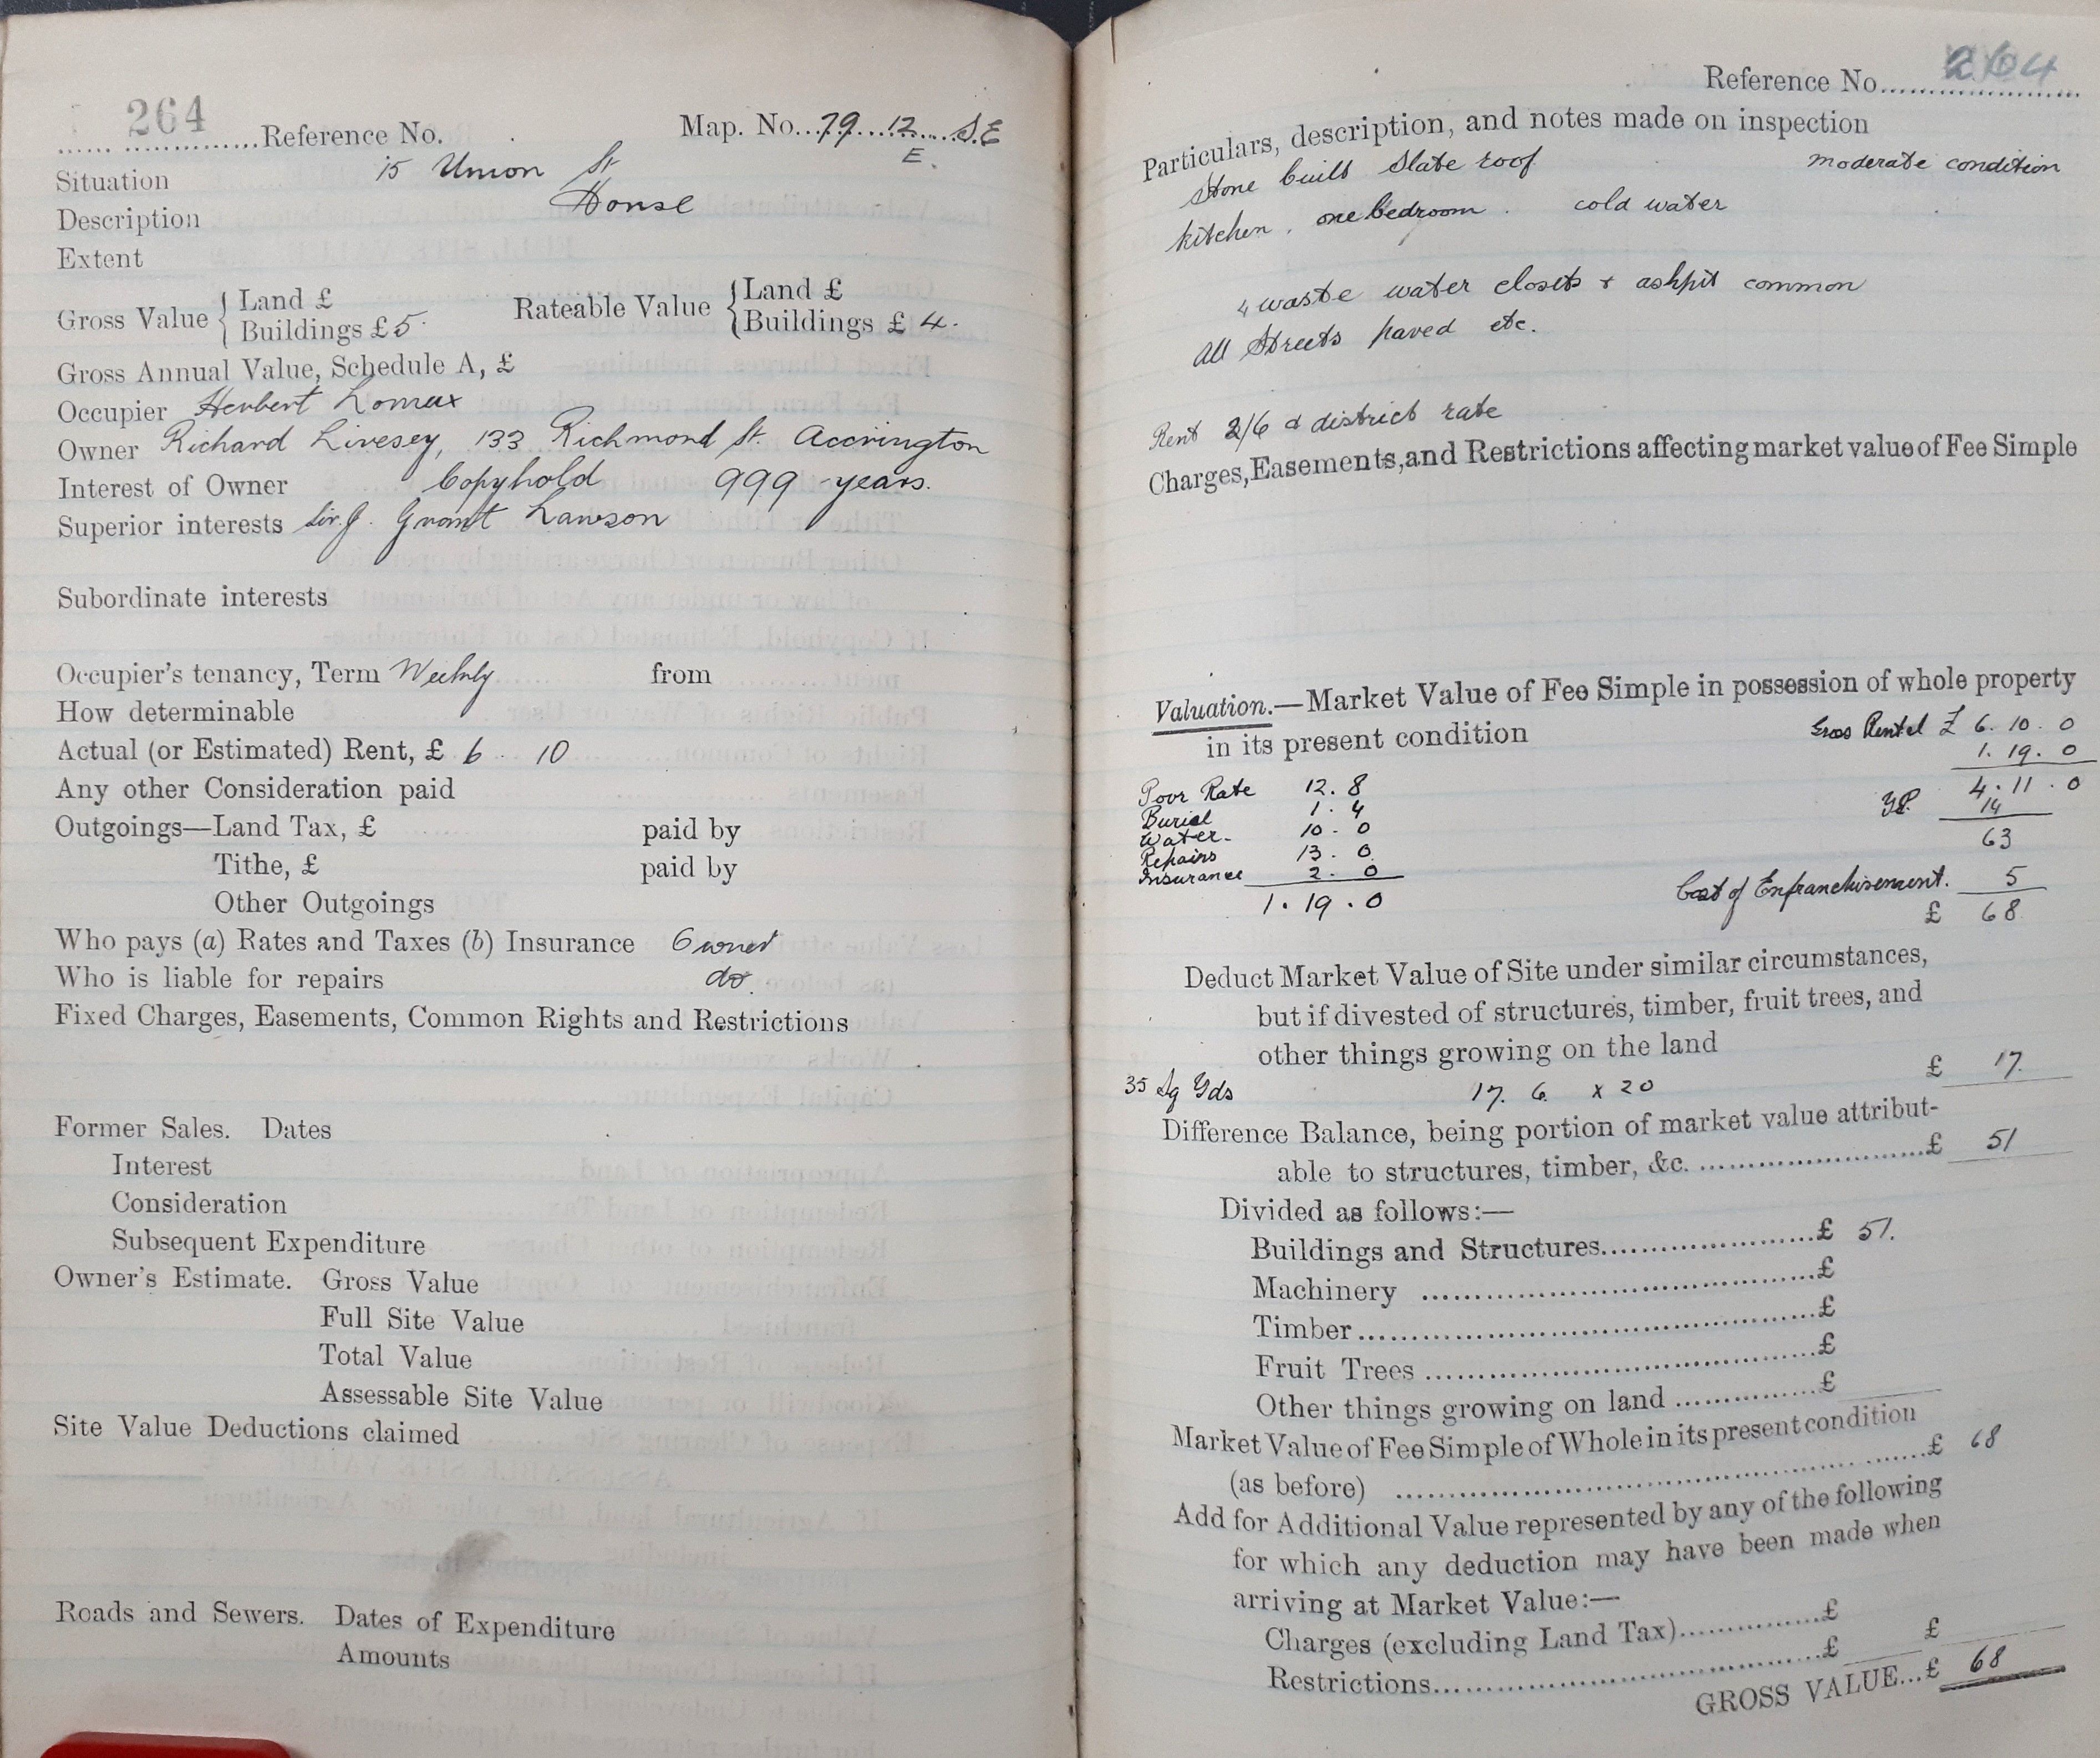 264 Reference No. Map. No. 79 12 S.E
E.
Situation 15 Union St
Description House
Extent
Gross Value { Land £
Buildings £ 5. Rateable Value { Land £
Buildings £ 4.
Gross Annual Value, Schedule A, £
Occupier Herbert Lomax
Owner Richard Livesey, 133 Richmond St. Accrington
Interest of Owner Copyhold 999 years.
Superior interests Sir J. Grant Lawson
Subordinate interests
Occupier's tenancy, Term Weekly from
How determinable
Actual (or Estimated) Rent, £ 6 10
Any other Consideration paid
Outgoings—Land Tax, £ paid by
Tithe, £ paid by
Other Outgoings
Who pays (a) Rates and Taxes (b) Insurance Owner
Who is liable for repairs do.
Fixed Charges, Easements, Common Rights and Restrictions
Former Sales. Dates
Interest
Consideration
Subsequent Expenditure
Owner's Estimate. Gross Value
Full Site Value
Total Value
Assessable Site Value
Site Value Deductions claimed
Roads and Sewers. Dates of Expenditure
Amounts
Reference No. 264
Particulars, description, and notes made on inspection
Stone built Slate roof moderate condition
kitchen, one bedroom. cold water
4 waste water closets & ashpit common
All Streets paved etc.
Rent 2/6 & district rate
Charges, Easements, and Restrictions affecting market value of Fee Simple
Valuation.—Market Value of Fee Simple in possession of whole property
in its present condition Gross Rental £ 6. 10. 0
1. 19. 0
Poor Rate 12. 8 4. 11. 0
Burial 1. 4 YP. 14
Water 10. 0 63
Repairs 13. 0
Insurance 2. 0 Cost of Enfranchisement. 5
1. 19. 0 £ 68
Deduct Market Value of Site under similar circumstances,
but if divested of structures, timber, fruit trees, and
other things growing on the land
35 Sq Yds 17. 6. x 20 £ 17.
Difference Balance, being portion of market value attribut-
able to structures, timber, &c. £ 51
Divided as follows:—
Buildings and Structures £ 51.
Machinery £
Timber £
Fruit Trees £
Other things growing on land £
Market Value of Fee Simple of Whole in its present condition
(as before) £ 68
Add for Additional Value represented by any of the following
for which any deduction may have been made when
arriving at Market Value:—
Charges (excluding Land Tax) £
Restrictions £ £
GROSS VALUE...£ 68